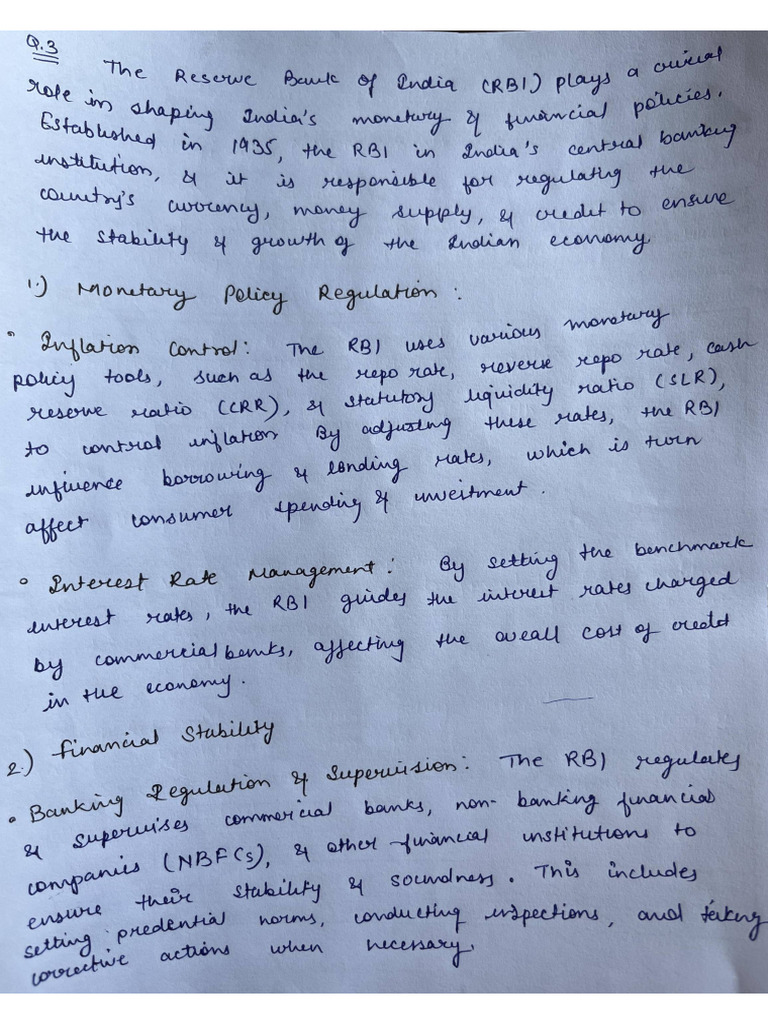 Q.3
The Reserve Bank of India (RBI) plays a crucial
role in shaping India's monetary & financial policies.
Established in 1935, the RBI in India's central banking
institution, & it is responsible for regulating the
country's currency, money supply, & credit to ensure
the stability & growth of the Indian economy.
1.) Monetary Policy Regulation :
• Inflation Control: The RBI uses various monetary
policy tools, such as the repo rate, reverse repo rate, cash
reserve ratio (CRR), & statutory liquidity ratio (SLR),
to control inflation By adjusting these rates, the RBI
influence borrowing & lending rates, which is turn
affect consumer spending & investment.
• Interest Rate Management: By setting the benchmark
interest rates, the RBI guides the interest rates charged
by commercial banks, affecting the overall cost of credit
in the economy.
2.) Financial Stability
• Banking Regulation & Supervision: The RBI regulates
& supervises commercial banks, non-banking financial
companies (NBFCs), & other financial institutions to
ensure their stability & soundness. This includes
setting predential norms, conducting inspections, and taking
corrective actions when necessary.